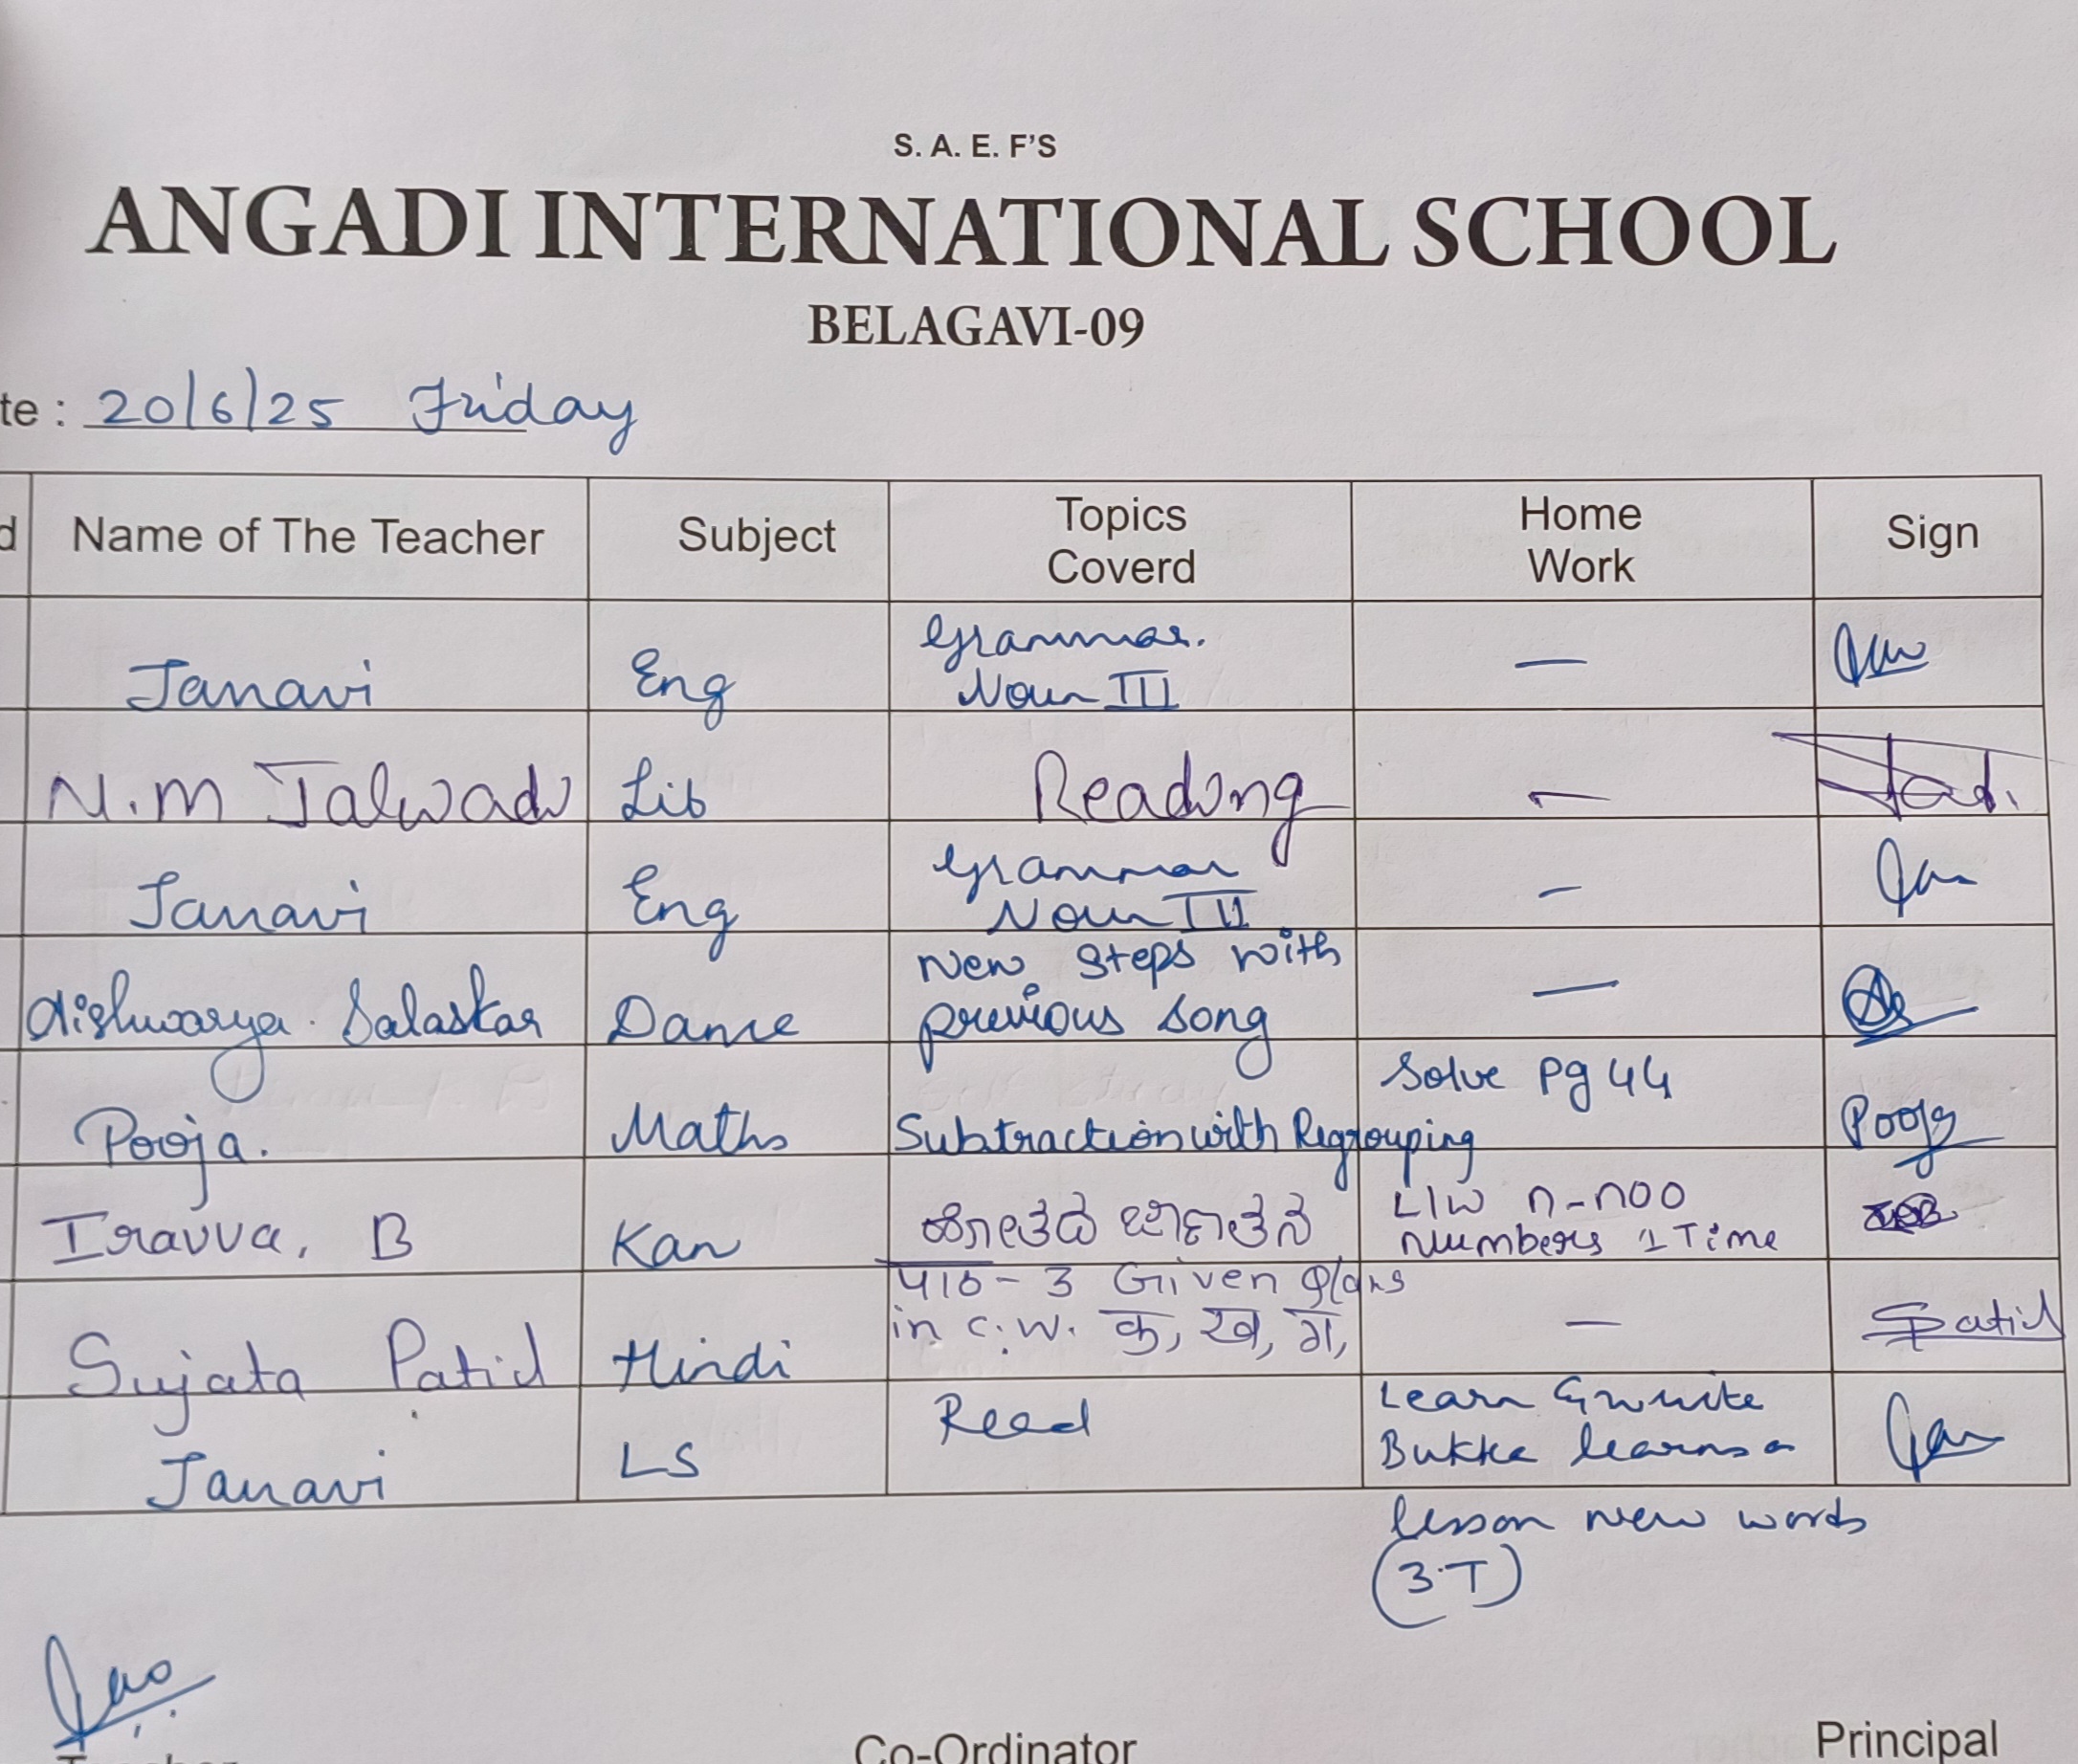 S. A. E. F'S
ANGADI INTERNATIONAL SCHOOL
BELAGAVI-09
te : 20/6/25 Friday
d Name of The Teacher Subject Topics Coverd Home Work Sign
Janavi Eng Grammar. Noun III —
N.M Talwadi Lib Reading —
Janavi Eng Grammar Noun III —
Aishwarya Salaskar Dance New steps with previous song —
Pooja. Maths Subtraction with Regrouping Solve Pg 44 Pooja
Iravva. B Kan L/W Numbers 1 Time
Sujata Patil Hindi पाठ - 3 Given in c.w. क, ख, ग, — SPatil
Janavi LS Read Learn & write Bukka learns a
lesson new words
(3.T)
Co-Ordinator
Principal